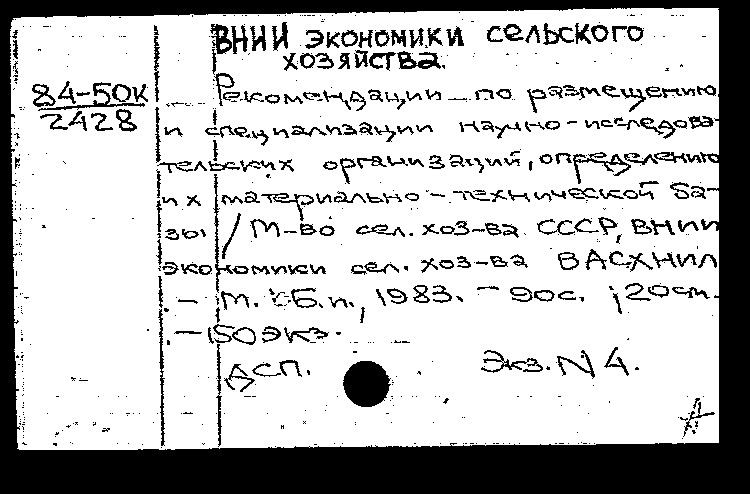 ВНИИ ЭКОНОМИКИ СЕЛЬСКОГО
ХОЗЯЙСТВА.
84-50К
2428
Рекомендации по размещению
и специализации научно-исследова-
тельских организаций, определению
их материально-технической ба-
зы / М-во сел. хоз-ва СССР, ВНИИ
экономики сел. хоз-ва ВАСХНИЛ
. - М. : Б.и., 1983. - 90с. ; 20см.
. - 150 экз.
ДСП. Экз. N 4.